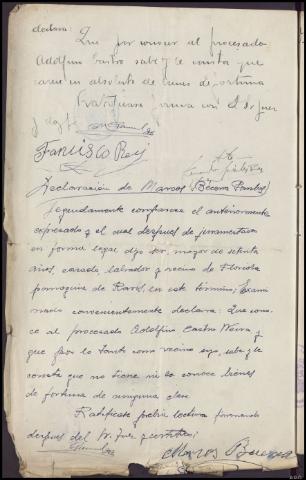 declara: Que por conocer al procesado
Adolfino Castro sabe y le consta que
carece en absoluto de bienes de fortuna
Ratificase, firma con S.S. Juez
y doy fe
Francisco Rey
Declaración de Marcos Becerra Fontas)
Seguidamente comparece el anteriormente
expresado y el cual después de juramentado
en forma legal dijo ser, mayor de setenta
años, casado, labrador y vecino de
parroquia de en este término; Exami
nado convenientemente declara: Que cono
ce al procesado Adolfino Castro Neira y
que por lo tanto como vecino suyo, sabe y le
consta que no tiene ni le conoce bienes
de fortuna de ninguna clase
Ratificase previa lectura firmando
después del Sr. Juez y certifico;
Marcos Becerra